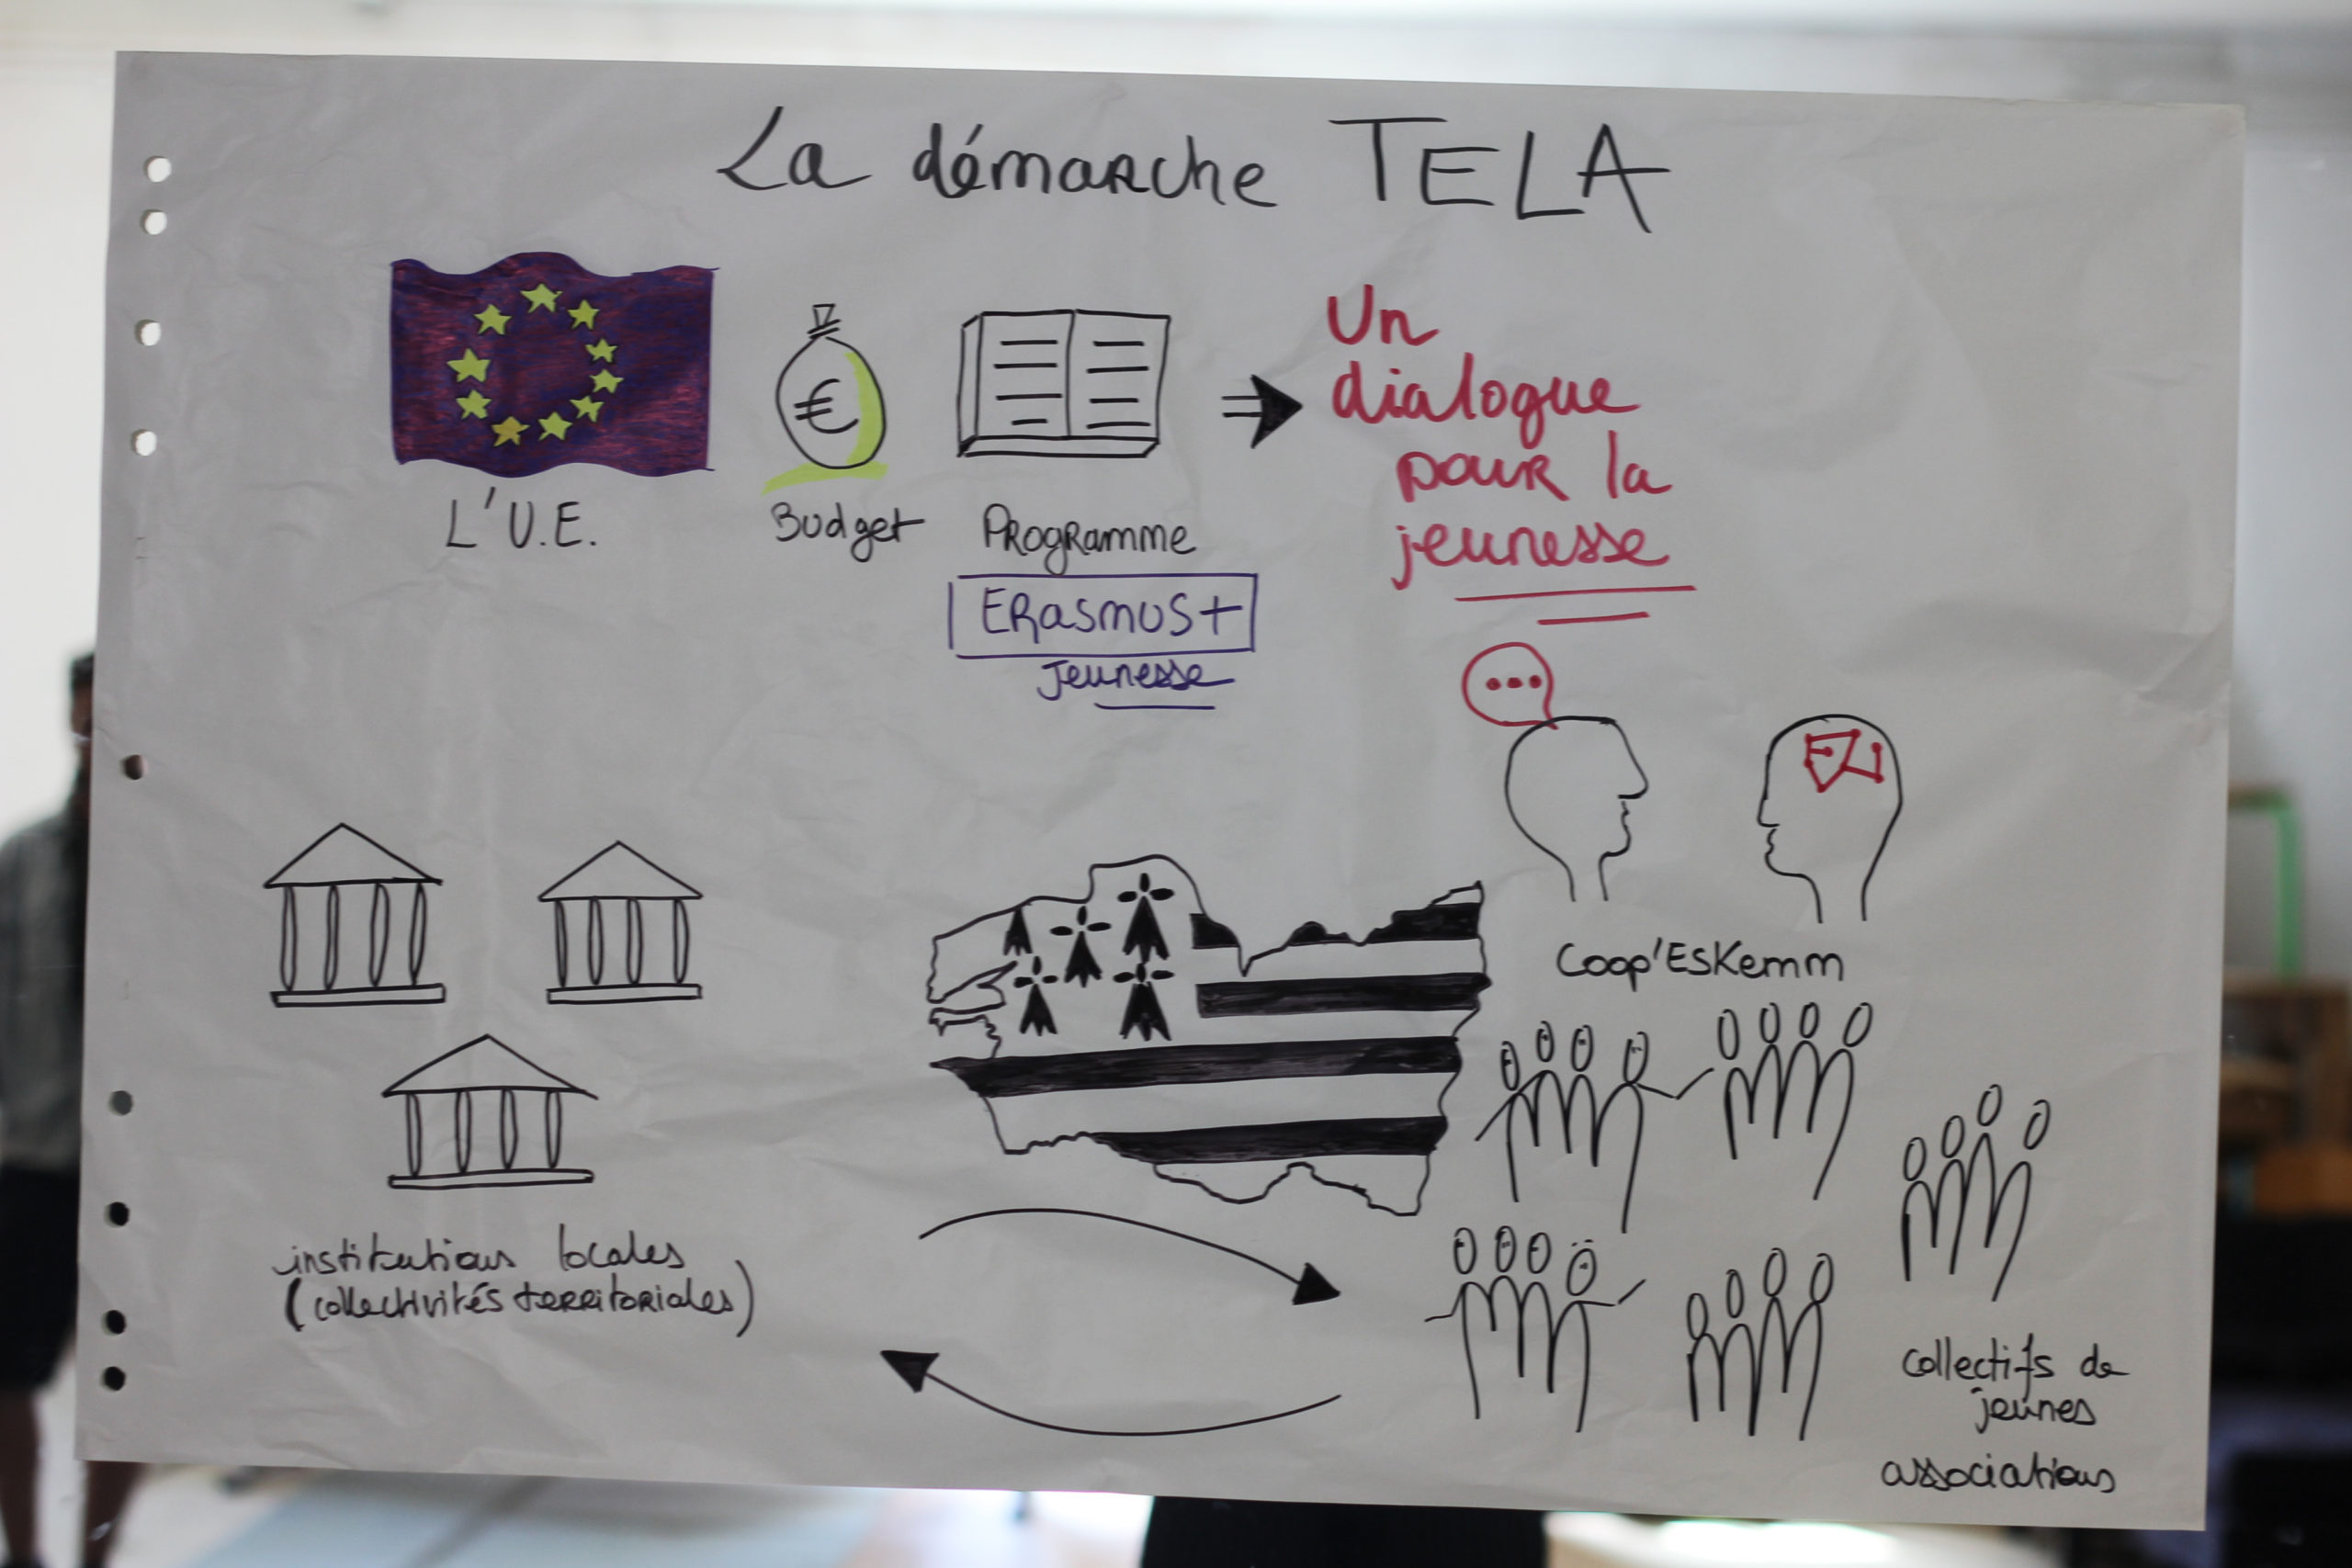 La démarche TELA
L'U.E.
€
Budget
Programme
Erasmus+
Jeunesse
Un
dialogue
pour la
jeunesse
Coop'Eskemm
institutions locales
(collectivités territoriales)
collectifs de
jeunes
associations